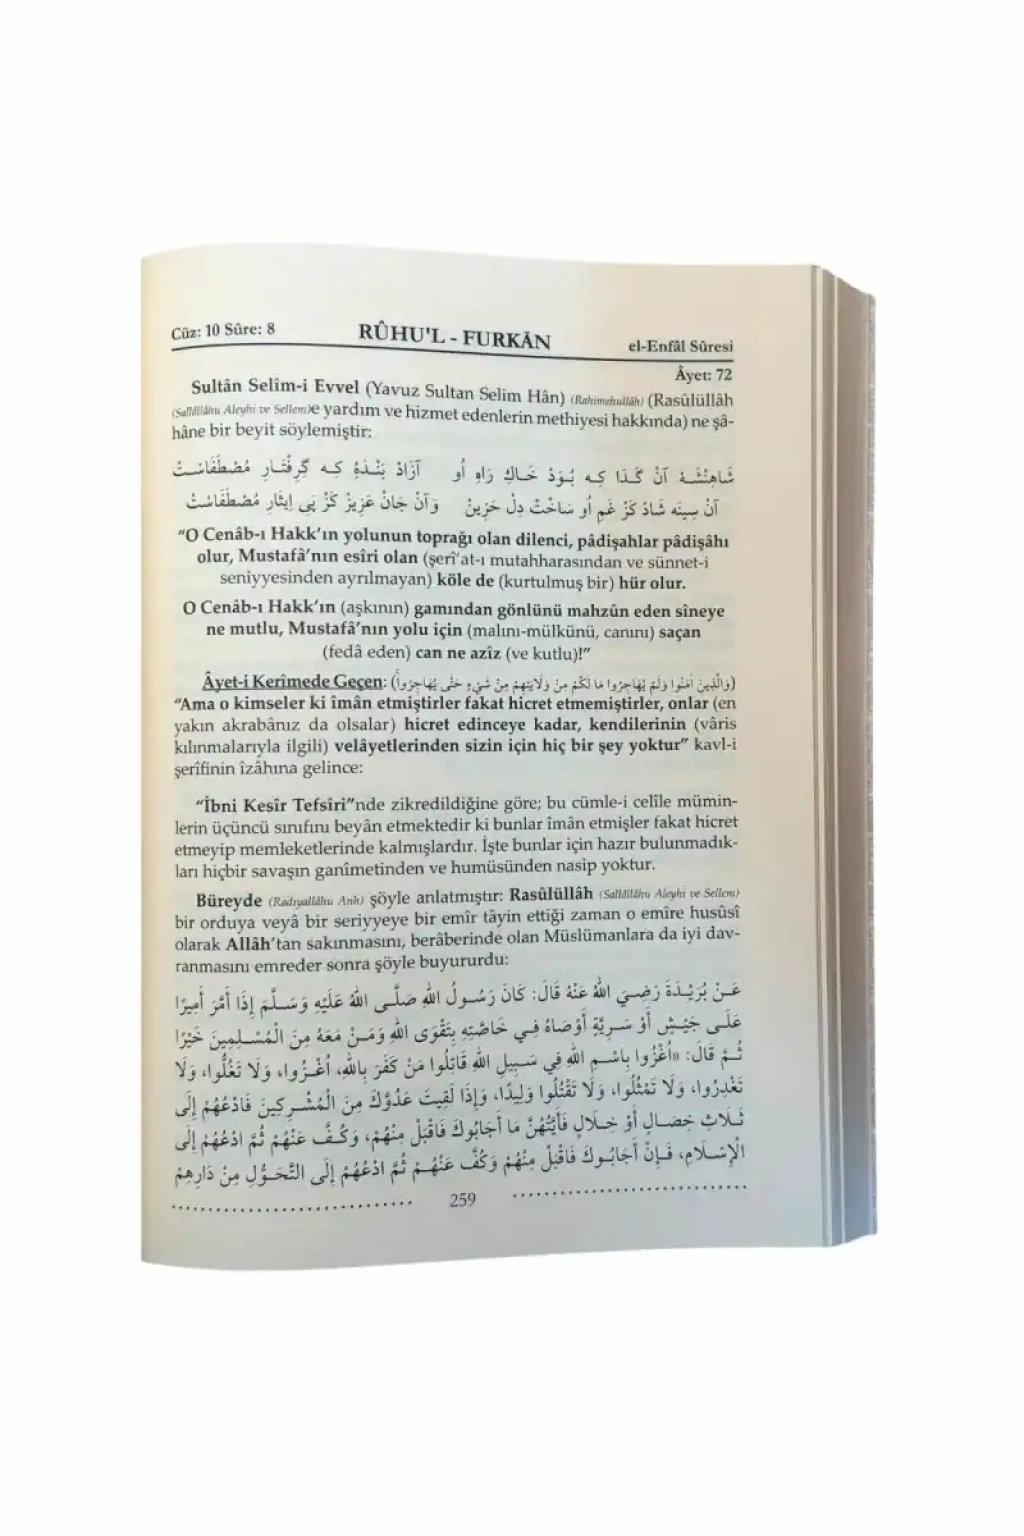 Cüz: 10 Sûre: 8
RÛHU'L - FURKÂN
el-Enfâl Sûresi
Âyet: 72
Sultân Selîm-i Evvel (Yavuz Sultan Selim Hân) (Rahimehullâh) (Rasûlüllâh
(Sallâllâhu Aleyhi ve Sellem)e yardım ve hizmet edenlerin methiyesi hakkında) ne şâ-
hâne bir beyit söylemiştir:
شَاهِنْشَهْ آنْ گَدَا كِه بُوَدْ خَاكِ رَاهِ اُو آزَادْ بَنْدَهْ كِه گِرِفْتَارِ مُصْطَفَاسْتْ
آنْ سِينَه شَادْ كَزْ غَمِ اُو سَاخْتْ دِلْ حَزِينْ وَآنْ جَانْ عَزِيزْ كَزْ پَى اِيثَارِ مُصْطَفَاسْتْ
"O Cenâb-ı Hakk'ın yolunun toprağı olan dilenci, pâdişahlar pâdişâhı
olur, Mustafâ'nın esîri olan (şerî'at-ı mutahharasından ve sünnet-i
seniyyesinden ayrılmayan) köle de (kurtulmuş bir) hür olur.
O Cenâb-ı Hakk'ın (aşkının) gamından gönlünü mahzûn eden sîneye
ne mutlu, Mustafâ'nın yolu için (malını-mülkünü, canını) saçan
(fedâ eden) can ne azîz (ve kutlu)!"
Âyet-i Kerîmede Geçen: (وَالَّذِينَ اٰمَنُوا وَلَمْ يُهَاجِرُوا مَا لَكُمْ مِنْ وَلَايَتِهِمْ مِنْ شَيْءٍ حَتّٰى يُهَاجِرُواۚ)
"Ama o kimseler ki îmân etmiştirler fakat hicret etmemiştirler, onlar (en
yakın akrabânız da olsalar) hicret edinceye kadar, kendilerinin (vâris
kılınmalarıyla ilgili) velâyetlerinden sizin için hiç bir şey yoktur" kavl-i
şerîfinin îzâhına gelince:
"İbni Kesîr Tefsîri"nde zikredildiğine göre; bu cümle-i celîle mümin-
lerin üçüncü sınıfını beyân etmektedir ki bunlar îmân etmişler fakat hicret
etmeyip memleketlerinde kalmışlardır. İşte bunlar için hazır bulunmadık-
ları hiçbir savaşın ganîmetinden ve humüsünden nasip yoktur.
Büreyde (Radıyallâhu Anh) şöyle anlatmıştır: Rasûlüllâh (Sallâllâhu Aleyhi ve Sellem)
bir orduya veyâ bir seriyyeye bir emîr tâyin ettiği zaman o emîre husûsî
olarak Allâh'tan sakınmasını, berâberinde olan Müslümanlara da iyi dav-
ranmasını emreder sonra şöyle buyururdu:
عَنْ بُرَيْدَةَ رَضِيَ اللهُ عَنْهُ قَالَ: كَانَ رَسُولُ اللهِ صَلَّى اللهُ عَلَيْهِ وَسَلَّمَ إِذَا أَمَّرَ أَمِيرًا
عَلَى جَيْشٍ أَوْ سَرِيَّةٍ أَوْصَاهُ فِي خَاصَّتِهِ بِتَقْوَى اللهِ وَمَنْ مَعَهُ مِنَ الْمُسْلِمِينَ خَيْرًا
ثُمَّ قَالَ: «اُغْزُوا بِاسْمِ اللهِ فِي سَبِيلِ اللهِ قَاتِلُوا مَنْ كَفَرَ بِاللهِ، اُغْزُوا، وَلَا تَغُلُّوا، وَلَا
تَغْدِرُوا، وَلَا تَمْثُلُوا، وَلَا تَقْتُلُوا وَلِيدًا، وَإِذَا لَقِيتَ عَدُوَّكَ مِنَ الْمُشْرِكِينَ فَادْعُهُمْ إِلَى
ثَلَاثِ خِصَالٍ أَوْ خِلَالٍ فَأَيَّتُهُنَّ مَا أَجَابُوكَ فَاقْبَلْ مِنْهُمْ، وَكُفَّ عَنْهُمْ ثُمَّ ادْعُهُمْ إِلَى
الْإِسْلَامِ، فَإِنْ أَجَابُوكَ فَاقْبَلْ مِنْهُمْ وَكُفَّ عَنْهُمْ ثُمَّ ادْعُهُمْ إِلَى التَّحَوُّلِ مِنْ دَارِهِمْ
259